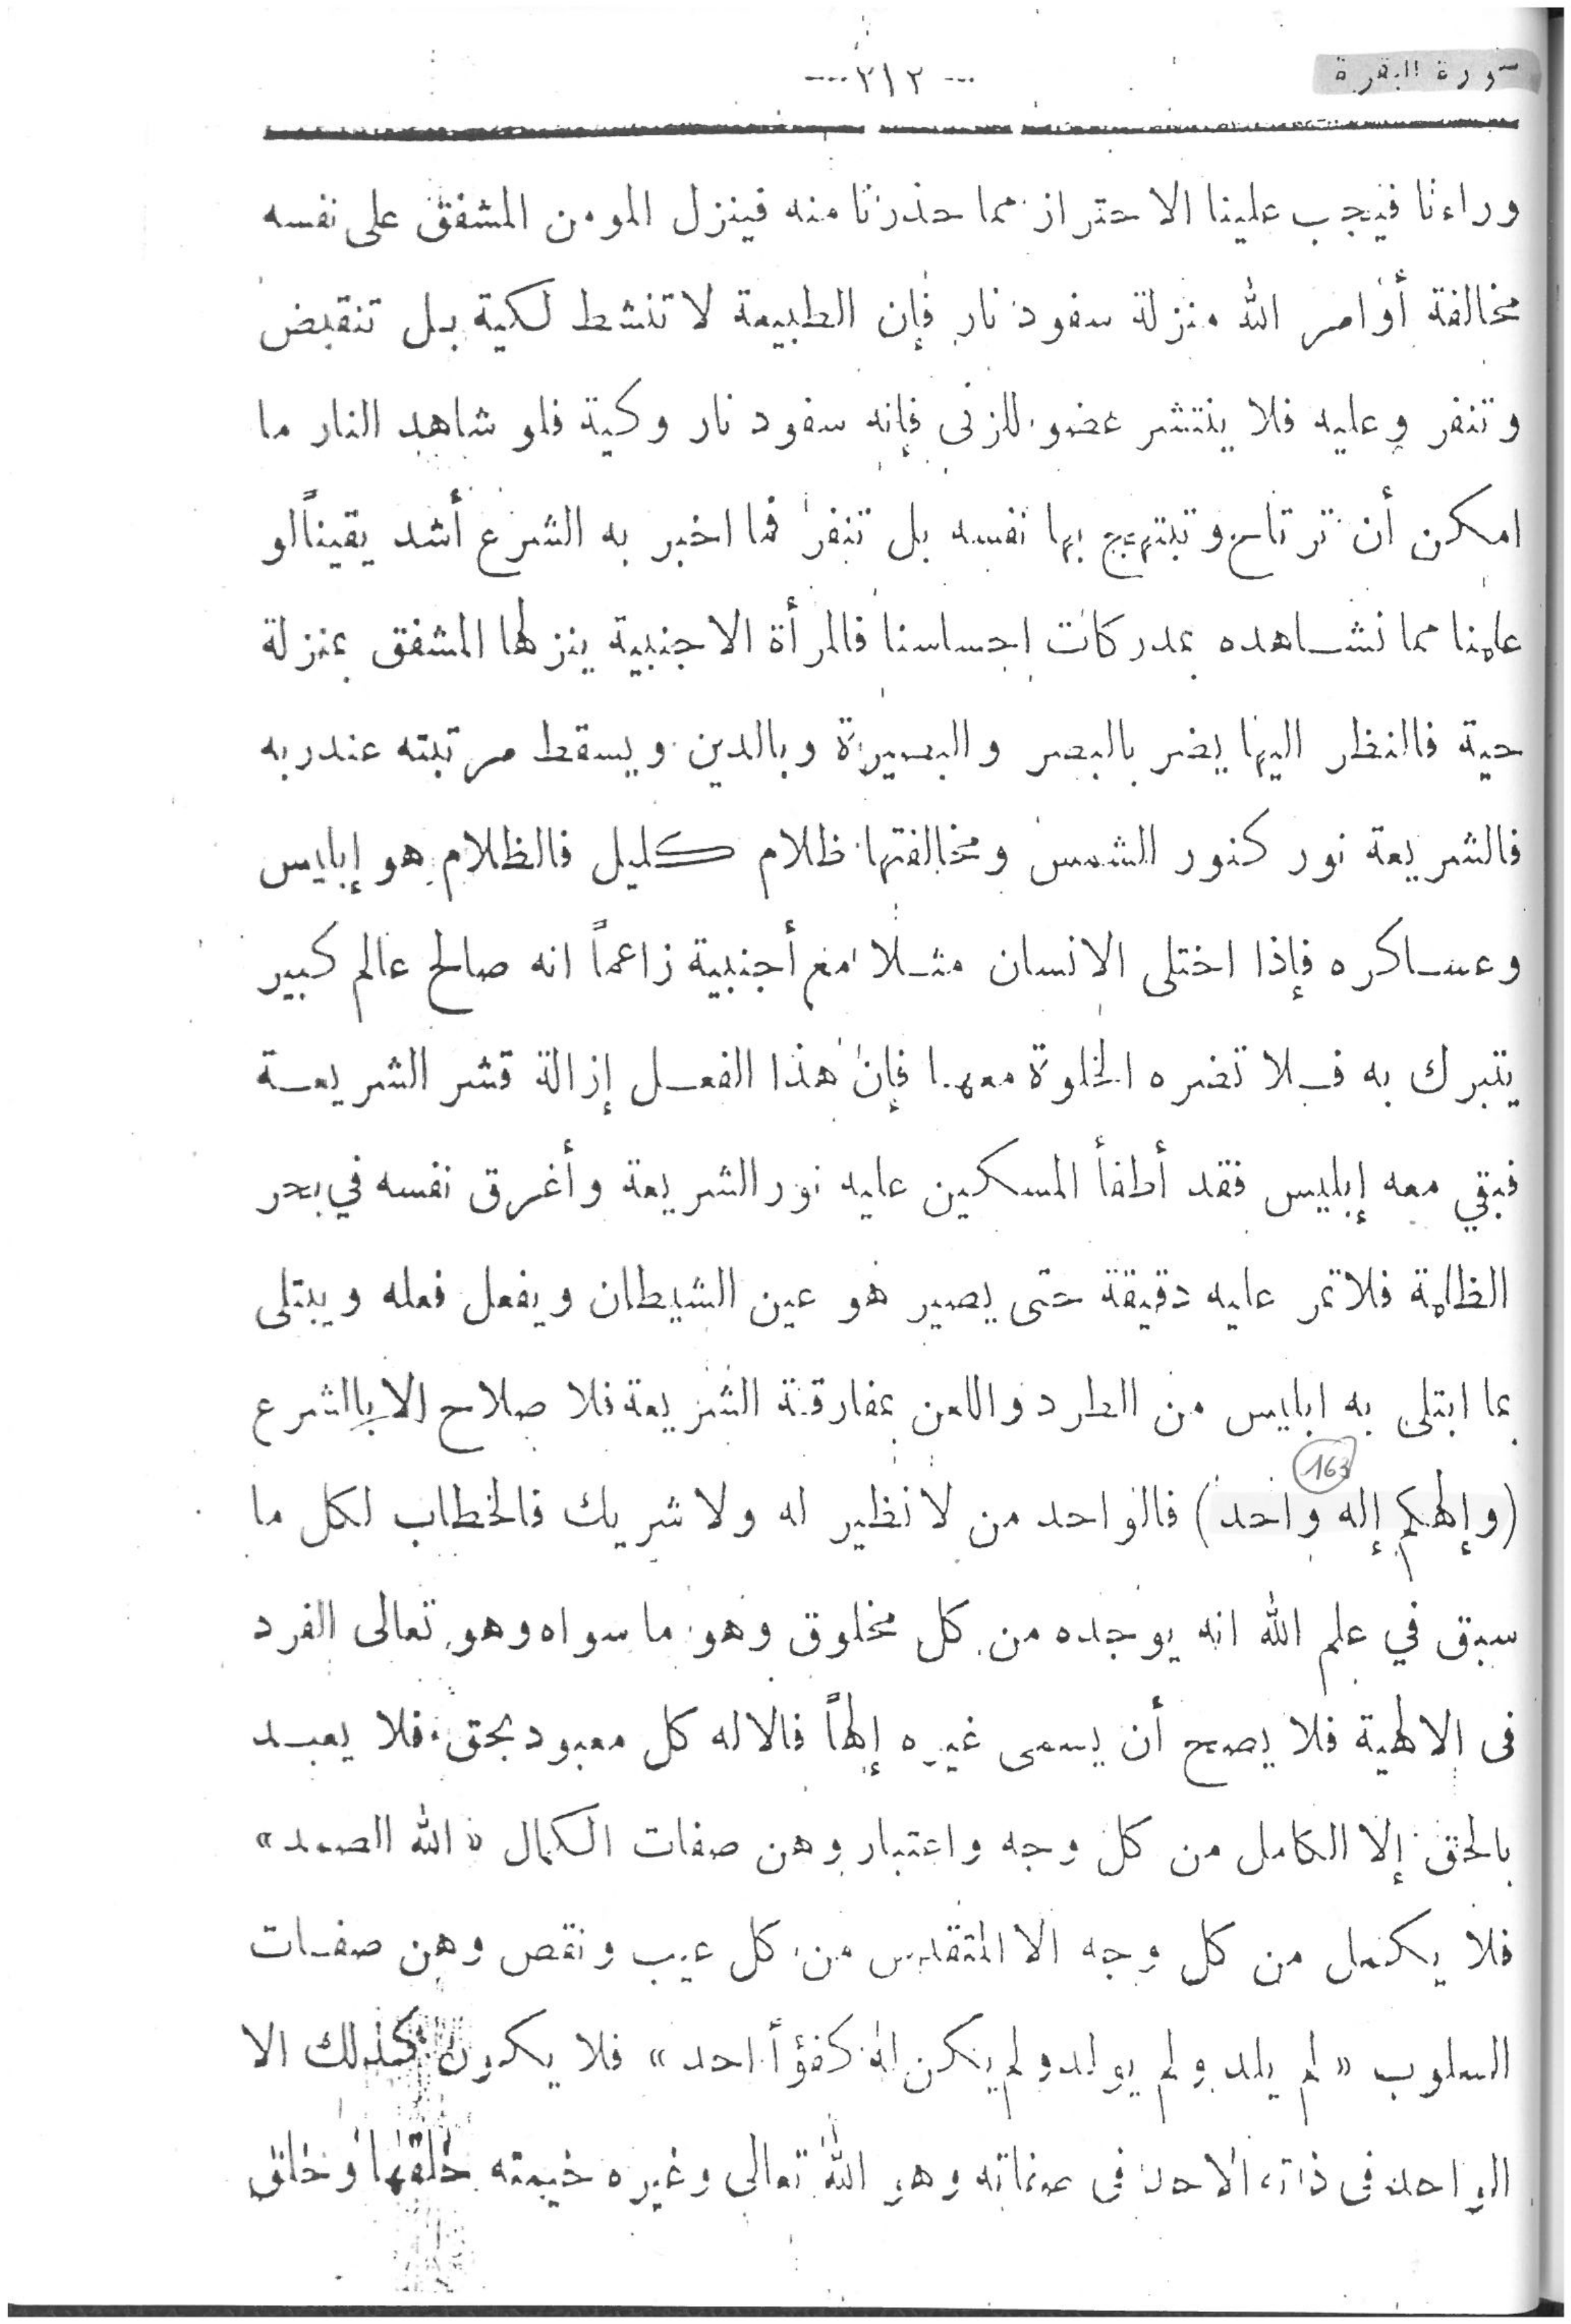 سورة البقرة
--- ٢١٢ ---
وراءنا فيجب علينا الاحتراز مما حذرنا منه فينزل المومن المشفق على نفسه
مخالفة أوامر الله منزلة سفود نار فإن الطبيعة لا تنشط لكية بل تنقبض
وتنفر وعليه فلا ينتشر عضو للزنى فإنه سفود نار وكية فلو شاهد النار ما
امكن أن ترتاح وتبتهج بها نفسه بل تنفر فما اخبر به الشرع أشد يقيناً لو
علمنا مما نشاهده بمدركات إحساسنا فالمرأة الاجنبية ينزلها المشفق بمنزلة
حية فالنظر اليها يضر بالبصر والبصيرة وبالدين ويسقط مرتبته عند ربه
فالشريعة نور كنور الشمس ومخالفتها ظلام كليل فالظلام هو إبليس
وعساكره فإذا اختلى الانسان مثلا مع أجنبية زاعماً انه صالح عالم كبير
يتبرك به فلا تضره الخلوة معها فإن هذا الفعل إزالة قشر الشريعة
فبقي معه إبليس فقد أطفأ المسكين عليه نور الشريعة وأغرق نفسه في بحر
الظلمة فلا تمر عليه دقيقة حتى يصير هو عين الشيطان ويفعل فعله ويبتلى
بما ابتلى به ابليس من الطرد واللعن بمفارقة الشريعة فلا صلاح الا باالشرع
163
(وإلهكم إله واحد) فالواحد من لا نظير له ولا شريك فالخطاب لكل ما
سبق في علم الله انه يوجده من كل مخلوق وهو ما سواه وهو تعالى الفرد
فى الالهية فلا يصح أن يسمى غيره إلهاً فالاله كل معبود بحق فلا يعبد
بالحق إلا الكامل من كل وجه واعتبار وهن صفات الكمال « الله الصمد»
فلا يكمل من كل وجه الا المتقدس من كل عيب ونقص وهن صفات
السلوب « لم يلد ولم يولد ولم يكن له كفؤاً احد» فلا يكون كذلك الا
الواحد فى ذاته الاحد فى صفاته وهو الله تعالى وغيره خيمته خلقها وخلق